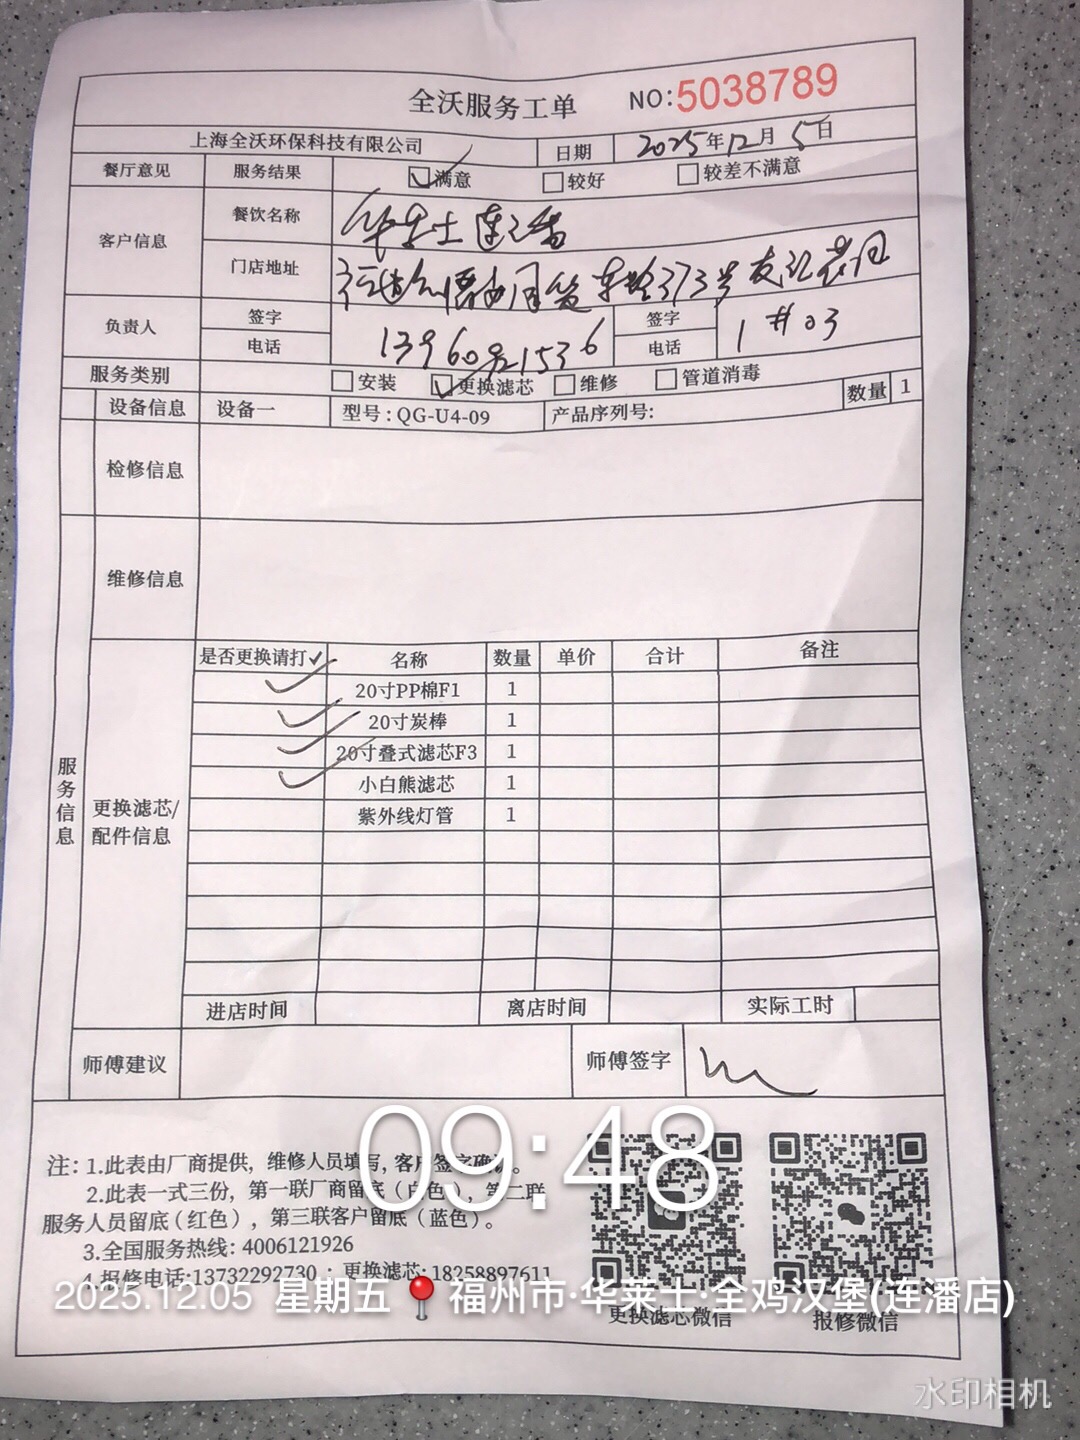 全沃服务工单 NO:5038789
上海全沃环保科技有限公司 日期 2025年12月5日
餐厅意见 服务结果 满意 较好 较差不满意
客户信息 餐饮名称 华莱士连潘
门店地址 373号
负责人 签字 签字 1#03
电话 电话
服务类别 安装 更换滤芯 维修 管道消毒
设备信息 设备一 型号:QG-U4-09 产品序列号: 数量 1
检修信息
维修信息
服务信息
更换滤芯/配件信息
是否更换请打✓ 名称 数量 单价 合计 备注
✓ 20寸PP棉F1 1
✓ 20寸炭棒 1
✓ 20寸叠式滤芯F3 1
✓ 小白熊滤芯 1
紫外线灯管 1
进店时间 离店时间 实际工时
师傅建议 师傅签字
09:48
注: 1.此表由厂商提供, 维修人员填写, 客户签字确认。
2.此表一式三份, 第一联厂商留底(白色), 第二联
服务人员留底(红色), 第三联客户留底(蓝色)。
3.全国服务热线: 4006121926
4.报修电话:13732292730 : 更换滤芯: 18258897611
更换滤芯微信 报修微信
2025.12.05 星期五 福州市·华莱士·全鸡汉堡(连潘店)
水印相机